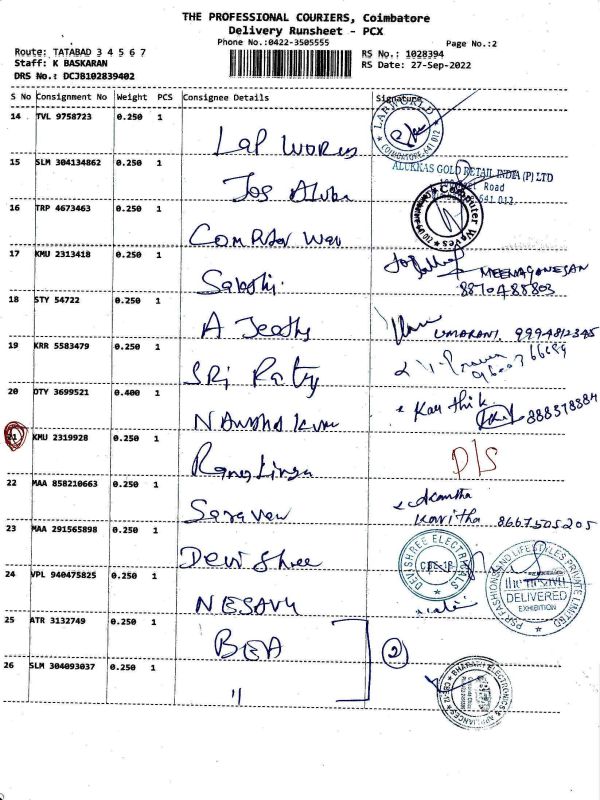 THE PROFESSIONAL COURIERS, Coimbatore
Delivery Runsheet - PCX
Phone No.:0422-3505555
Page No.:2
Route: TATABAD 3 4 5 6 7
RS No.: 1028394
Staff: K BASKARAN
RS Date: 27-Sep-2022
DRS No.: DCJB102839402
S No Consignment No Weight PCS Consignee Details Signature
14 TVL 9758723 0.250 1
LAP WORLD
LAPWORLD COIMBATORE-641 012
15 SLM 304134862 0.250 1
Jos Alukka
ALUKKAS GOLD RETAIL INDIA (P) LTD
Road
641 012
16 TRP 4673463 0.250 1
Computer Waves
17 KMU 2313418 0.250 1
Sakthi
MEENAGANESAN
8870488803
18 STY 54722 0.250 1
A Jeethy
UMARANI. 9994812345
19 KRR 5583479 0.250 1
SRi
20 OTY 3699521 0.400 1
Karthik
21 KMU 2319928 0.250 1
D/S
22 MAA 858210663 0.250 1
Saravan
Kavitha 8667505205
23 MAA 291565898 0.250 1
Devi Shree
DEVISHREE ELECTRICALS
CBE-12
24 VPL 940475825 0.250 1
NESAVU
PSR FASHIONS AND LIFESTYLES PRIVATE LIMITED
the nesavu
DELIVERED
EXHIBITION
25 ATR 3132749 0.250 1
BEA
2
26 SLM 304093037 0.250 1
"
BHARATH ELECTRONICS & APPLIANCES